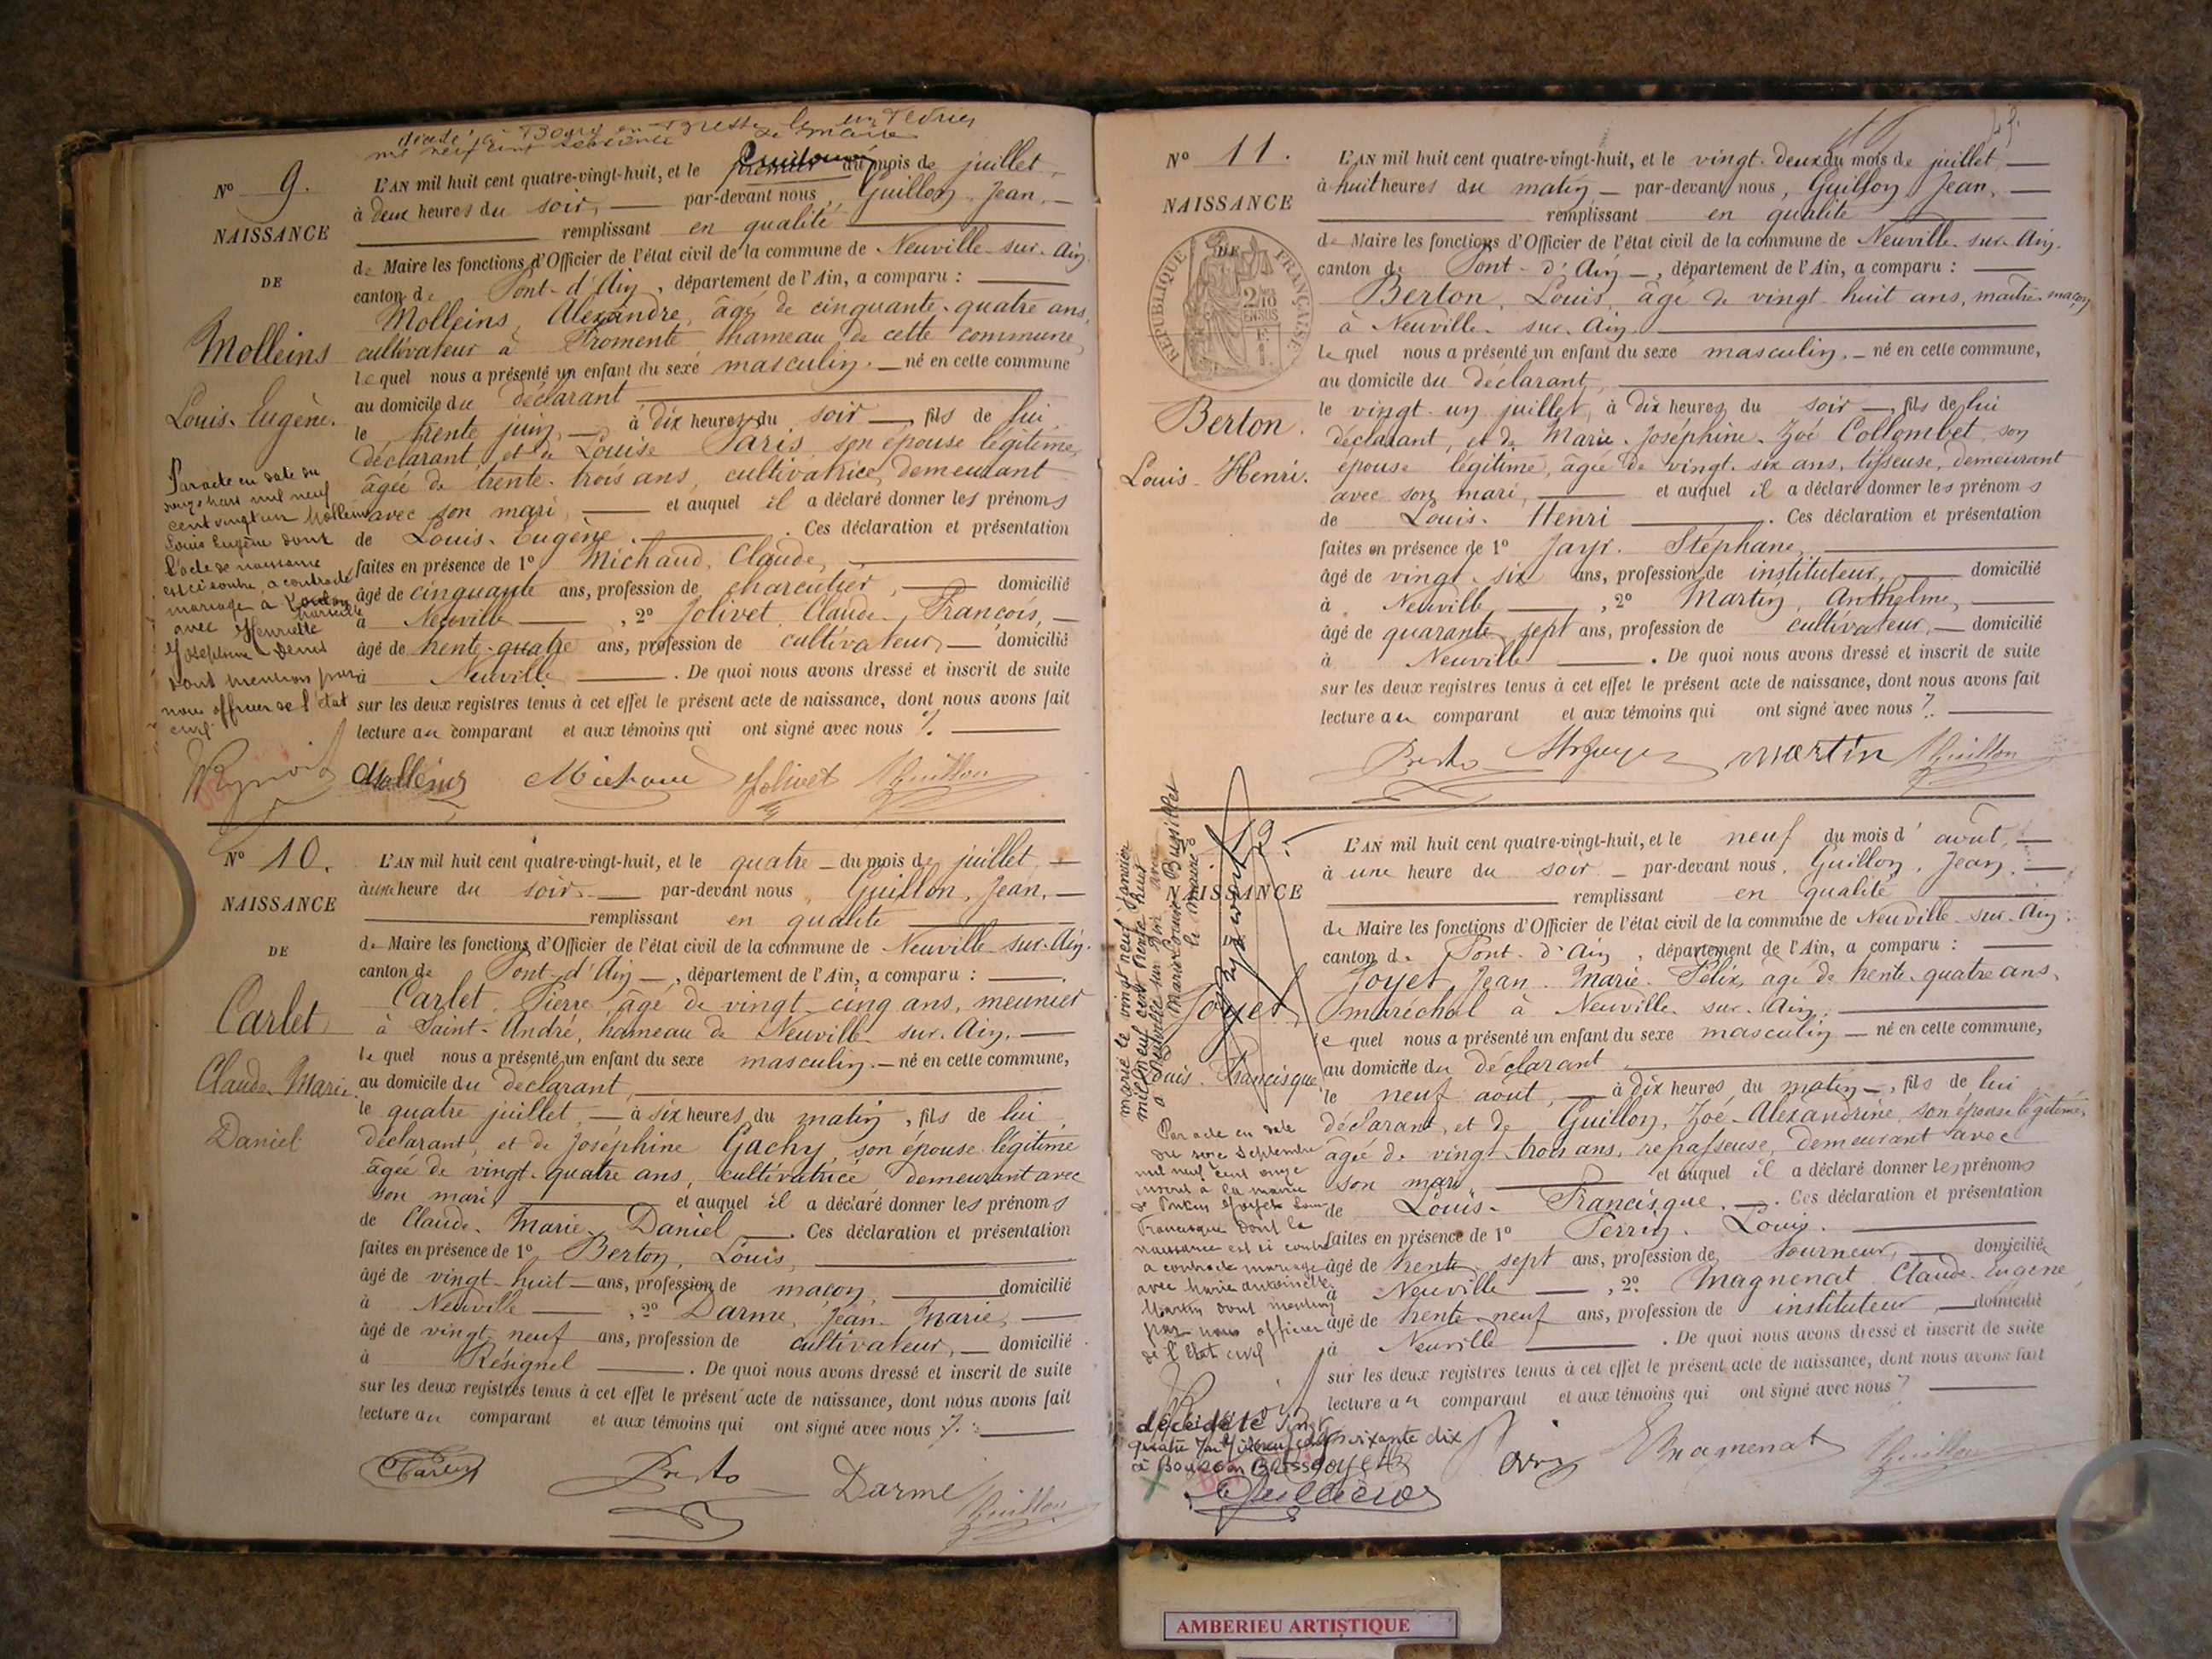 décédé à Bourg en Bresse le un février
mil neuf cent soixante
le maire
N° 9.
NAISSANCE
DE
Molleins
Louis-Eugène.
L'AN mil huit cent quatre-vingt-huit, et le premier du mois de juillet,
à deux heures du soir, par-devant nous, Guillon, Jean,
remplissant en qualité
de Maire les fonctions d'Officier de l'état civil de la commune de Neuville-sur-Ain,
canton de Pont-d'Ain, département de l'Ain, a comparu :
Molleins, Alexandre, âgé de cinquante-quatre ans,
cultivateur à Fromente hameau de cette commune,
lequel nous a présenté un enfant du sexe masculin, né en cette commune
au domicile du déclarant
le trente juin, à dix heures du soir, fils de lui
déclarant, et de Louise Paris son épouse légitime,
âgée de trente-trois ans, cultivatrice, demeurant
avec son mari, et auquel il a déclaré donner les prénoms
de Louis-Eugène. Ces déclaration et présentation
faites en présence de 1° Michaud, Claude,
âgé de cinquante ans, profession de charcutier, domicilié
à Neuville, 2° Jolivet, Claude-François,
âgé de trente-quatre ans, profession de cultivateur, domicilié
à Neuville. De quoi nous avons dressé et inscrit de suite
sur les deux registres tenus à cet effet le présent acte de naissance, dont nous avons fait
lecture au comparant et aux témoins qui ont signé avec nous
Par acte en date du
onze mars mil neuf
cent vingt un Molleins
Louis Eugène dont
l'acte de naissance
est ci contre, a contracté
mariage à
avec Henriette
Joséphine Denis
dont mention par
nous officier de l'état
civil
Molleins Michaud Jolivet Guillon
N° 10.
NAISSANCE
DE
Carlet
Claude-Marie
Daniel
L'AN mil huit cent quatre-vingt-huit, et le quatre du mois de juillet,
à une heure du soir, par-devant nous, Guillon, Jean,
remplissant en qualité
de Maire les fonctions d'Officier de l'état civil de la commune de Neuville-sur-Ain,
canton de Pont-d'Ain, département de l'Ain, a comparu :
Carlet, Pierre, âgé de vingt-cinq ans, meunier
à Saint-André, hameau de Neuville-sur-Ain,
lequel nous a présenté un enfant du sexe masculin, né en cette commune,
au domicile du déclarant,
le quatre juillet, à six heures du matin, fils de lui
déclarant, et de Joséphine Gachy, son épouse légitime
âgée de vingt-quatre ans, cultivatrice demeurant avec
son mari, et auquel il a déclaré donner les prénoms
de Claude-Marie-Daniel. Ces déclaration et présentation
faites en présence de 1° Berton, Louis,
âgé de vingt-huit ans, profession de maçon, domicilié
à Neuville, 2° Darme, Jean-Marie,
âgé de vingt-neuf ans, profession de cultivateur, domicilié
à Résignel. De quoi nous avons dressé et inscrit de suite
sur les deux registres tenus à cet effet le présent acte de naissance, dont nous avons fait
lecture au comparant et aux témoins qui ont signé avec nous
Carlet Darme Guillon
N° 11.
NAISSANCE
DE
RÉPUBLIQUE FRANÇAISE
2/10 EN SUS
Berton.
Louis-Henri.
L'AN mil huit cent quatre-vingt-huit, et le vingt-deux du mois de juillet,
à huit heures du matin, par-devant nous, Guillon, Jean,
remplissant en qualité
de Maire les fonctions d'Officier de l'état civil de la commune de Neuville-sur-Ain.
canton de Pont-d'Ain, département de l'Ain, a comparu :
Berton, Louis, âgé de vingt-huit ans, maître-maçon
à Neuville-sur-Ain.
lequel nous a présenté un enfant du sexe masculin, né en cette commune,
au domicile du déclarant,
le vingt-un juillet, à dix heures du soir, fils de lui
déclarant, et de Marie-Joséphine-Zoé Collombet, son
épouse légitime, âgée de vingt-six ans, tisseuse, demeurant
avec son mari, et auquel il a déclaré donner les prénoms
de Louis-Henri. Ces déclaration et présentation
faites en présence de 1° Jayr, Stéphane,
âgé de vingt-six ans, profession de instituteur, domicilié
à Neuville, 2° Martin, Anthelme,
âgé de quarante-sept ans, profession de cultivateur, domicilié
à Neuville. De quoi nous avons dressé et inscrit de suite
sur les deux registres tenus à cet effet le présent acte de naissance, dont nous avons fait
lecture au comparant et aux témoins qui ont signé avec nous
Martin Guillon
12
NAISSANCE
Joyet
Louis-Francisque
L'AN mil huit cent quatre-vingt-huit, et le neuf du mois d'août,
à une heure du soir, par-devant nous, Guillon, Jean,
remplissant en qualité
de Maire les fonctions d'Officier de l'état civil de la commune de Neuville-sur-Ain.
canton de Pont-d'Ain, département de l'Ain, a comparu :
Joyet, Jean-Marie-Félix, âgé de trente-quatre ans,
maréchal à Neuville-sur-Ain,
lequel nous a présenté un enfant du sexe masculin, né en cette commune,
au domicile du déclarant
le neuf août, à dix heures du matin, fils de lui
déclarant, et de Guillon, Zoé-Alexandrine, son épouse légitime,
âgée de vingt-trois ans, repasseuse, demeurant avec
son mari, et auquel il a déclaré donner les prénoms
de Louis-Francisque. Ces déclaration et présentation
faites en présence de 1° Perrin, Louis,
âgé de trente-sept ans, profession de tourneur, domicilié
à Neuville, 2° Magnenat Claude-Eugène,
âgé de trente-neuf ans, profession de instituteur, domicilié
à Neuville. De quoi nous avons dressé et inscrit de suite
sur les deux registres tenus à cet effet le présent acte de naissance, dont nous avons fait
lecture au comparant et aux témoins qui ont signé avec nous
marié le vingt neuf janvier
mil neuf cent trente neuf
à Neuville sur Ain avec
Marie Louise
le maire
Par acte en date
du onze septembre
mil neuf cent onze
inscrit à la mairie
de Poncin Joyet Louis
Francisque dont la
naissance est ci contre
a contracté mariage
avec Marie Antoinette
Martin dont mention
par nous officier
de l'état civil
décédé le vingt
quatre mil neuf cent soixante dix
à Bourg en Bresse
Joyet Magnenat Guillon
AMBERIEU ARTISTIQUE